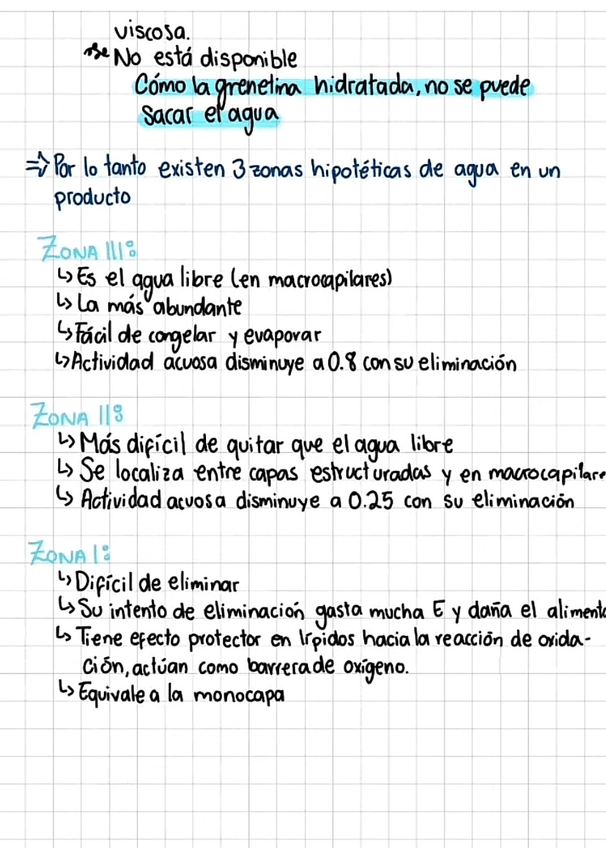 viscosa.
No está disponible
Cómo la grenetina hidratada, no se puede
sacar el agua
⇒ Por lo tanto existen 3 zonas hipotéticas de agua en un
producto
ZONA III:
↳ Es el agua libre (en macrocapilares)
↳ La más abundante
↳ Fácil de congelar y evaporar
↳ Actividad acuosa disminuye a 0.8 con su eliminación
ZONA II:
↳ Más difícil de quitar que el agua libre
↳ Se localiza entre capas estructuradas y en macrocapilare
↳ Actividad acuosa disminuye a 0.25 con su eliminación
ZONA I:
↳ Difícil de eliminar
↳ Su intento de eliminación gasta mucha E y daña el alimento
↳ Tiene efecto protector en lípidos hacia la reacción de oxida-
ción, actúan como barrera de oxígeno.
↳ Equivale a la monocapa